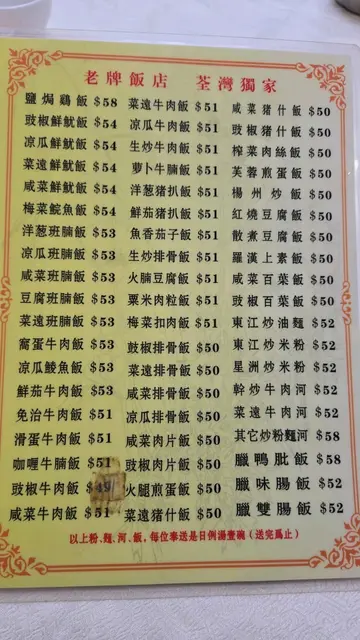 老牌飯店 荃灣獨家
鹽焗鷄飯 $58
豉椒鮮魷飯 $54
凉瓜鮮魷飯 $54
菜遠鮮魷飯 $54
咸菜鮮魷飯 $54
梅菜鯇魚飯 $54
洋葱班腩飯 $53
凉瓜班腩飯 $53
咸菜班腩飯 $53
豆腐班腩飯 $53
菜遠班腩飯 $53
窩蛋牛肉飯 $53
凉瓜鯪魚飯 $53
鮮茄牛肉飯 $53
免治牛肉飯 $51
滑蛋牛肉飯 $51
咖喱牛腩飯 $51
豉椒牛肉飯 $49
咸菜牛肉飯 $51
菜遠牛肉飯 $51
凉瓜牛肉飯 $51
生炒牛肉飯 $51
萝卜牛腩飯 $51
洋葱猪扒飯 $51
鮮茄猪扒飯 $51
魚香茄子飯 $51
生炒排骨飯 $51
火腩豆腐飯 $51
粟米肉粒飯 $51
梅菜扣肉飯 $51
豉椒排骨飯 $50
菜遠排骨飯 $50
咸菜排骨飯 $50
凉瓜排骨飯 $50
咸菜肉片飯 $50
豉椒肉片飯 $50
火腿煎蛋飯 $50
菜遠猪什飯 $50
咸菜猪什飯 $50
豉椒猪什飯 $50
榨菜肉絲飯 $50
芙蓉煎蛋飯 $50
楊州炒飯 $50
紅燒豆腐飯 $50
散煮豆腐飯 $50
羅漢上素飯 $50
咸菜百葉飯 $50
豉椒百葉飯 $50
東江炒油麵 $52
東江炒米粉 $52
星洲炒米粉 $52
幹炒牛肉河 $52
菜遠牛肉河 $52
其它炒粉麵河 $58
臘鴨肶飯 $58
臘味腸飯 $52
臘雙腸飯 $52
以上粉、麵、河、飯，每位奉送是日例湯壹碗（送完爲止）